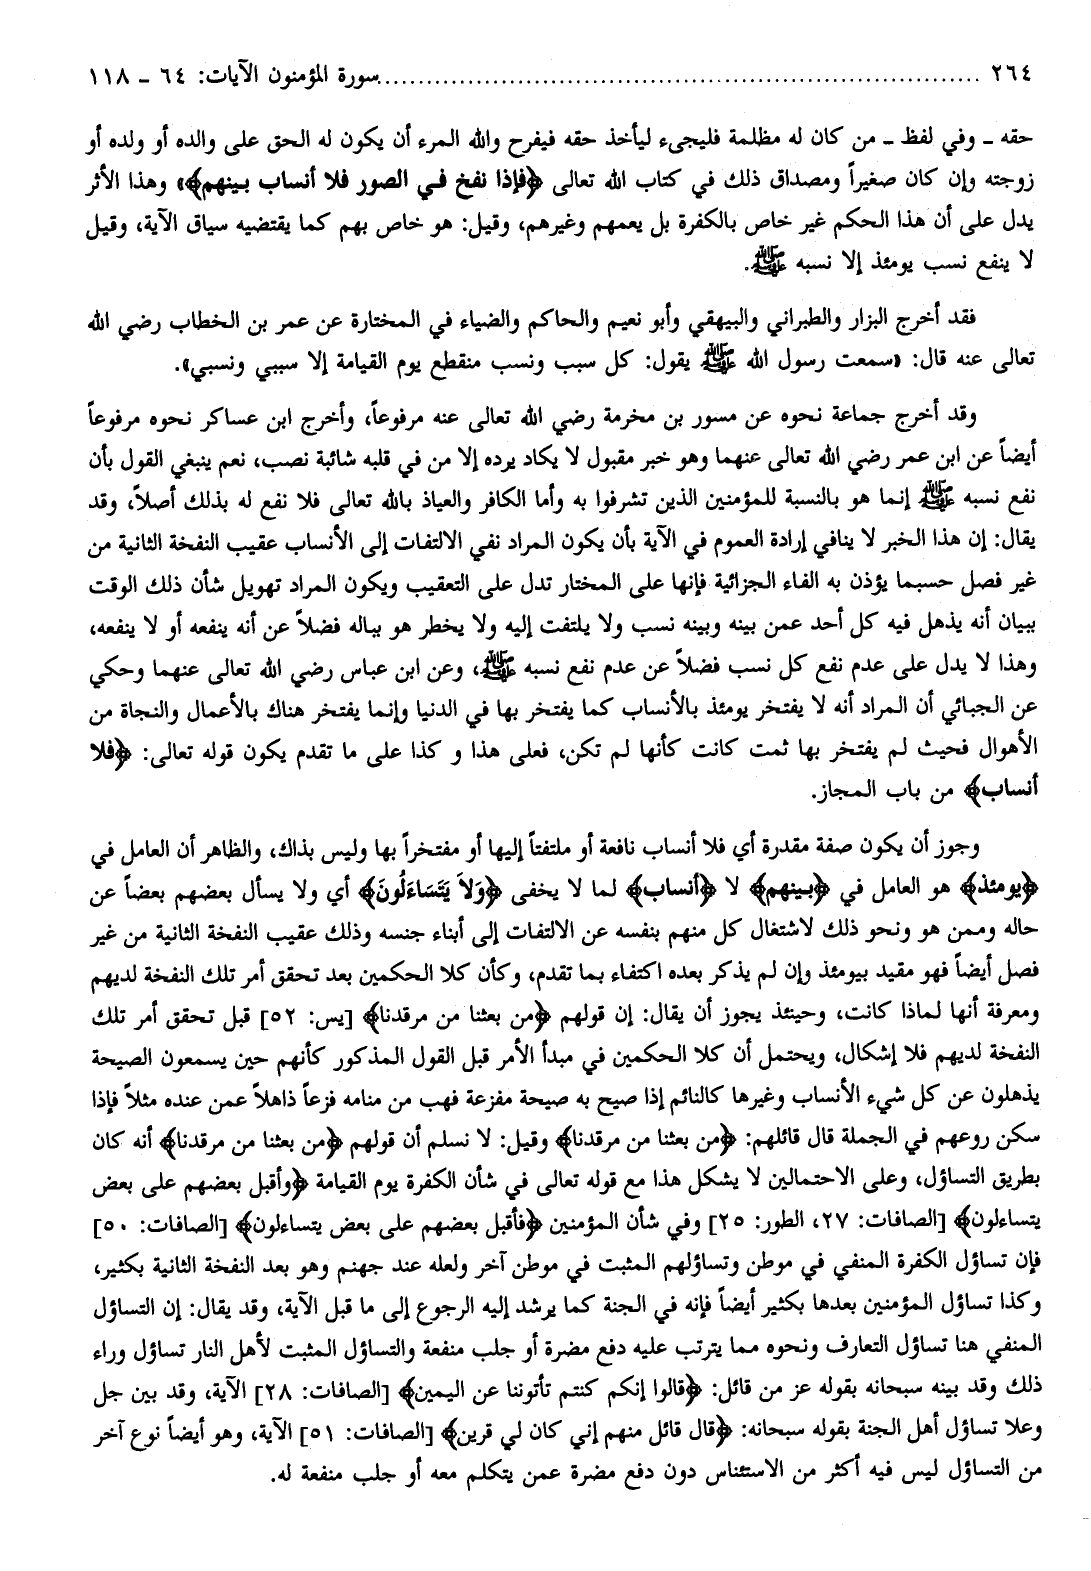 ٢٦٤ ........................................ سورة المؤمنون الآيات: ٦٤ ـ ١١٨
حقه ـ وفي لفظ ـ من كان له مظلمة فليجىء ليأخذ حقه فيفرح والله المرء أن يكون له الحق على والده أو ولده أو
زوجته وإن كان صغيراً ومصداق ذلك في كتاب الله تعالى ﴿فإذا نفخ في الصور فلا أنساب بينهم﴾» وهذا الأثر
يدل على أن هذا الحكم غير خاص بالكفرة بل يعمهم وغيرهم، وقيل: هو خاص بهم كما يقتضيه سياق الآية، وقيل
لا ينفع نسب يومئذ إلا نسبه ﷺ.
فقد أخرج البزار والطبراني والبيهقي وأبو نعيم والحاكم والضياء في المختارة عن عمر بن الخطاب رضي الله
تعالى عنه قال: «سمعت رسول الله ﷺ يقول: كل سبب ونسب منقطع يوم القيامة إلا سببي ونسبي».
وقد أخرج جماعة نحوه عن مسور بن مخرمة رضي الله تعالى عنه مرفوعاً، وأخرج ابن عساكر نحوه مرفوعاً
أيضاً عن ابن عمر رضي الله تعالى عنهما وهو خبر مقبول لا يكاد يرده إلا من في قلبه شائبة نصب، نعم ينبغي القول بأن
نفع نسبه ﷺ إنما هو بالنسبة للمؤمنين الذين تشرفوا به وأما الكافر والعياذ بالله تعالى فلا نفع له بذلك أصلاً، وقد
يقال: إن هذا الخبر لا ينافي إرادة العموم في الآية بأن يكون المراد نفي الالتفات إلى الأنساب عقيب النفخة الثانية من
غير فصل حسبما يؤذن به الفاء الجزائية فإنها على المختار تدل على التعقيب ويكون المراد تهويل شأن ذلك الوقت
ببيان أنه يذهل فيه كل أحد عمن بينه وبينه نسب ولا يلتفت إليه ولا يخطر هو بباله فضلاً عن أنه ينفعه أو لا ينفعه،
وهذا لا يدل على عدم نفع كل نسب فضلاً عن عدم نفع نسبه ﷺ، وعن ابن عباس رضي الله تعالى عنهما وحكي
عن الجبائي أن المراد أنه لا يفتخر يومئذ بالأنساب كما يفتخر بها في الدنيا وإنما يفتخر هناك بالأعمال والنجاة من
الأهوال فحيث لم يفتخر بها ثمت كانت كأنها لم تكن، فعلى هذا و كذا على ما تقدم يكون قوله تعالى: ﴿فلا
أنساب﴾ من باب المجاز.
وجوز أن يكون صفة مقدرة أي فلا أنساب نافعة أو ملتفتاً إليها أو مفتخراً بها وليس بذاك، والظاهر أن العامل في
﴿يومئذ﴾ هو العامل في ﴿بينهم﴾ لا ﴿أنساب﴾ لما لا يخفى ﴿وَلاَ يَتَسَاءَلُونَ﴾ أي ولا يسأل بعضهم بعضاً عن
حاله وممن هو ونحو ذلك لاشتغال كل منهم بنفسه عن الالتفات إلى أبناء جنسه وذلك عقيب النفخة الثانية من غير
فصل أيضاً فهو مقيد بيومئذ وإن لم يذكر بعده اكتفاء بما تقدم، وكأن كلا الحكمين بعد تحقق أمر تلك النفخة لديهم
ومعرفة أنها لماذا كانت، وحينئذ يجوز أن يقال: إن قولهم ﴿من بعثنا من مرقدنا﴾ [يس: ٥٢] قبل تحقق أمر تلك
النفخة لديهم فلا إشكال، ويحتمل أن كلا الحكمين في مبدأ الأمر قبل القول المذكور كأنهم حين يسمعون الصيحة
يذهلون عن كل شيء الأنساب وغيرها كالنائم إذا صيح به صيحة مفزعة فهب من منامه فزعاً ذاهلاً عمن عنده مثلاً فإذا
سكن روعهم في الجملة قال قائلهم: ﴿من بعثنا من مرقدنا﴾ وقيل: لا نسلم أن قولهم ﴿من بعثنا من مرقدنا﴾ أنه كان
بطريق التساؤل، وعلى الاحتمالين لا يشكل هذا مع قوله تعالى في شأن الكفرة يوم القيامة ﴿وأقبل بعضهم على بعض
يتساءلون﴾ [الصافات: ٢٧، الطور: ٢٥] وفي شأن المؤمنين ﴿فأقبل بعضهم على بعض يتساءلون﴾ [الصافات: ٥٠]
فإن تساؤل الكفرة المنفي في موطن وتساؤلهم المثبت في موطن آخر ولعله عند جهنم وهو بعد النفخة الثانية بكثير،
وكذا تساؤل المؤمنين بعدها بكثير أيضاً فإنه في الجنة كما يرشد إليه الرجوع إلى ما قبل الآية، وقد يقال: إن التساؤل
المنفي هنا تساؤل التعارف ونحوه مما يترتب عليه دفع مضرة أو جلب منفعة والتساؤل المثبت لأهل النار تساؤل وراء
ذلك وقد بينه سبحانه بقوله عز من قائل: ﴿قالوا إنكم كنتم تأتوننا عن اليمين﴾ [الصافات: ٢٨] الآية، وقد بين جل
وعلا تساؤل أهل الجنة بقوله سبحانه: ﴿قال قائل منهم إني كان لي قرين﴾ [الصافات: ٥١] الآية، وهو أيضاً نوع آخر
من التساؤل ليس فيه أكثر من الاستئناس دون دفع مضرة عمن يتكلم معه أو جلب منفعة له.